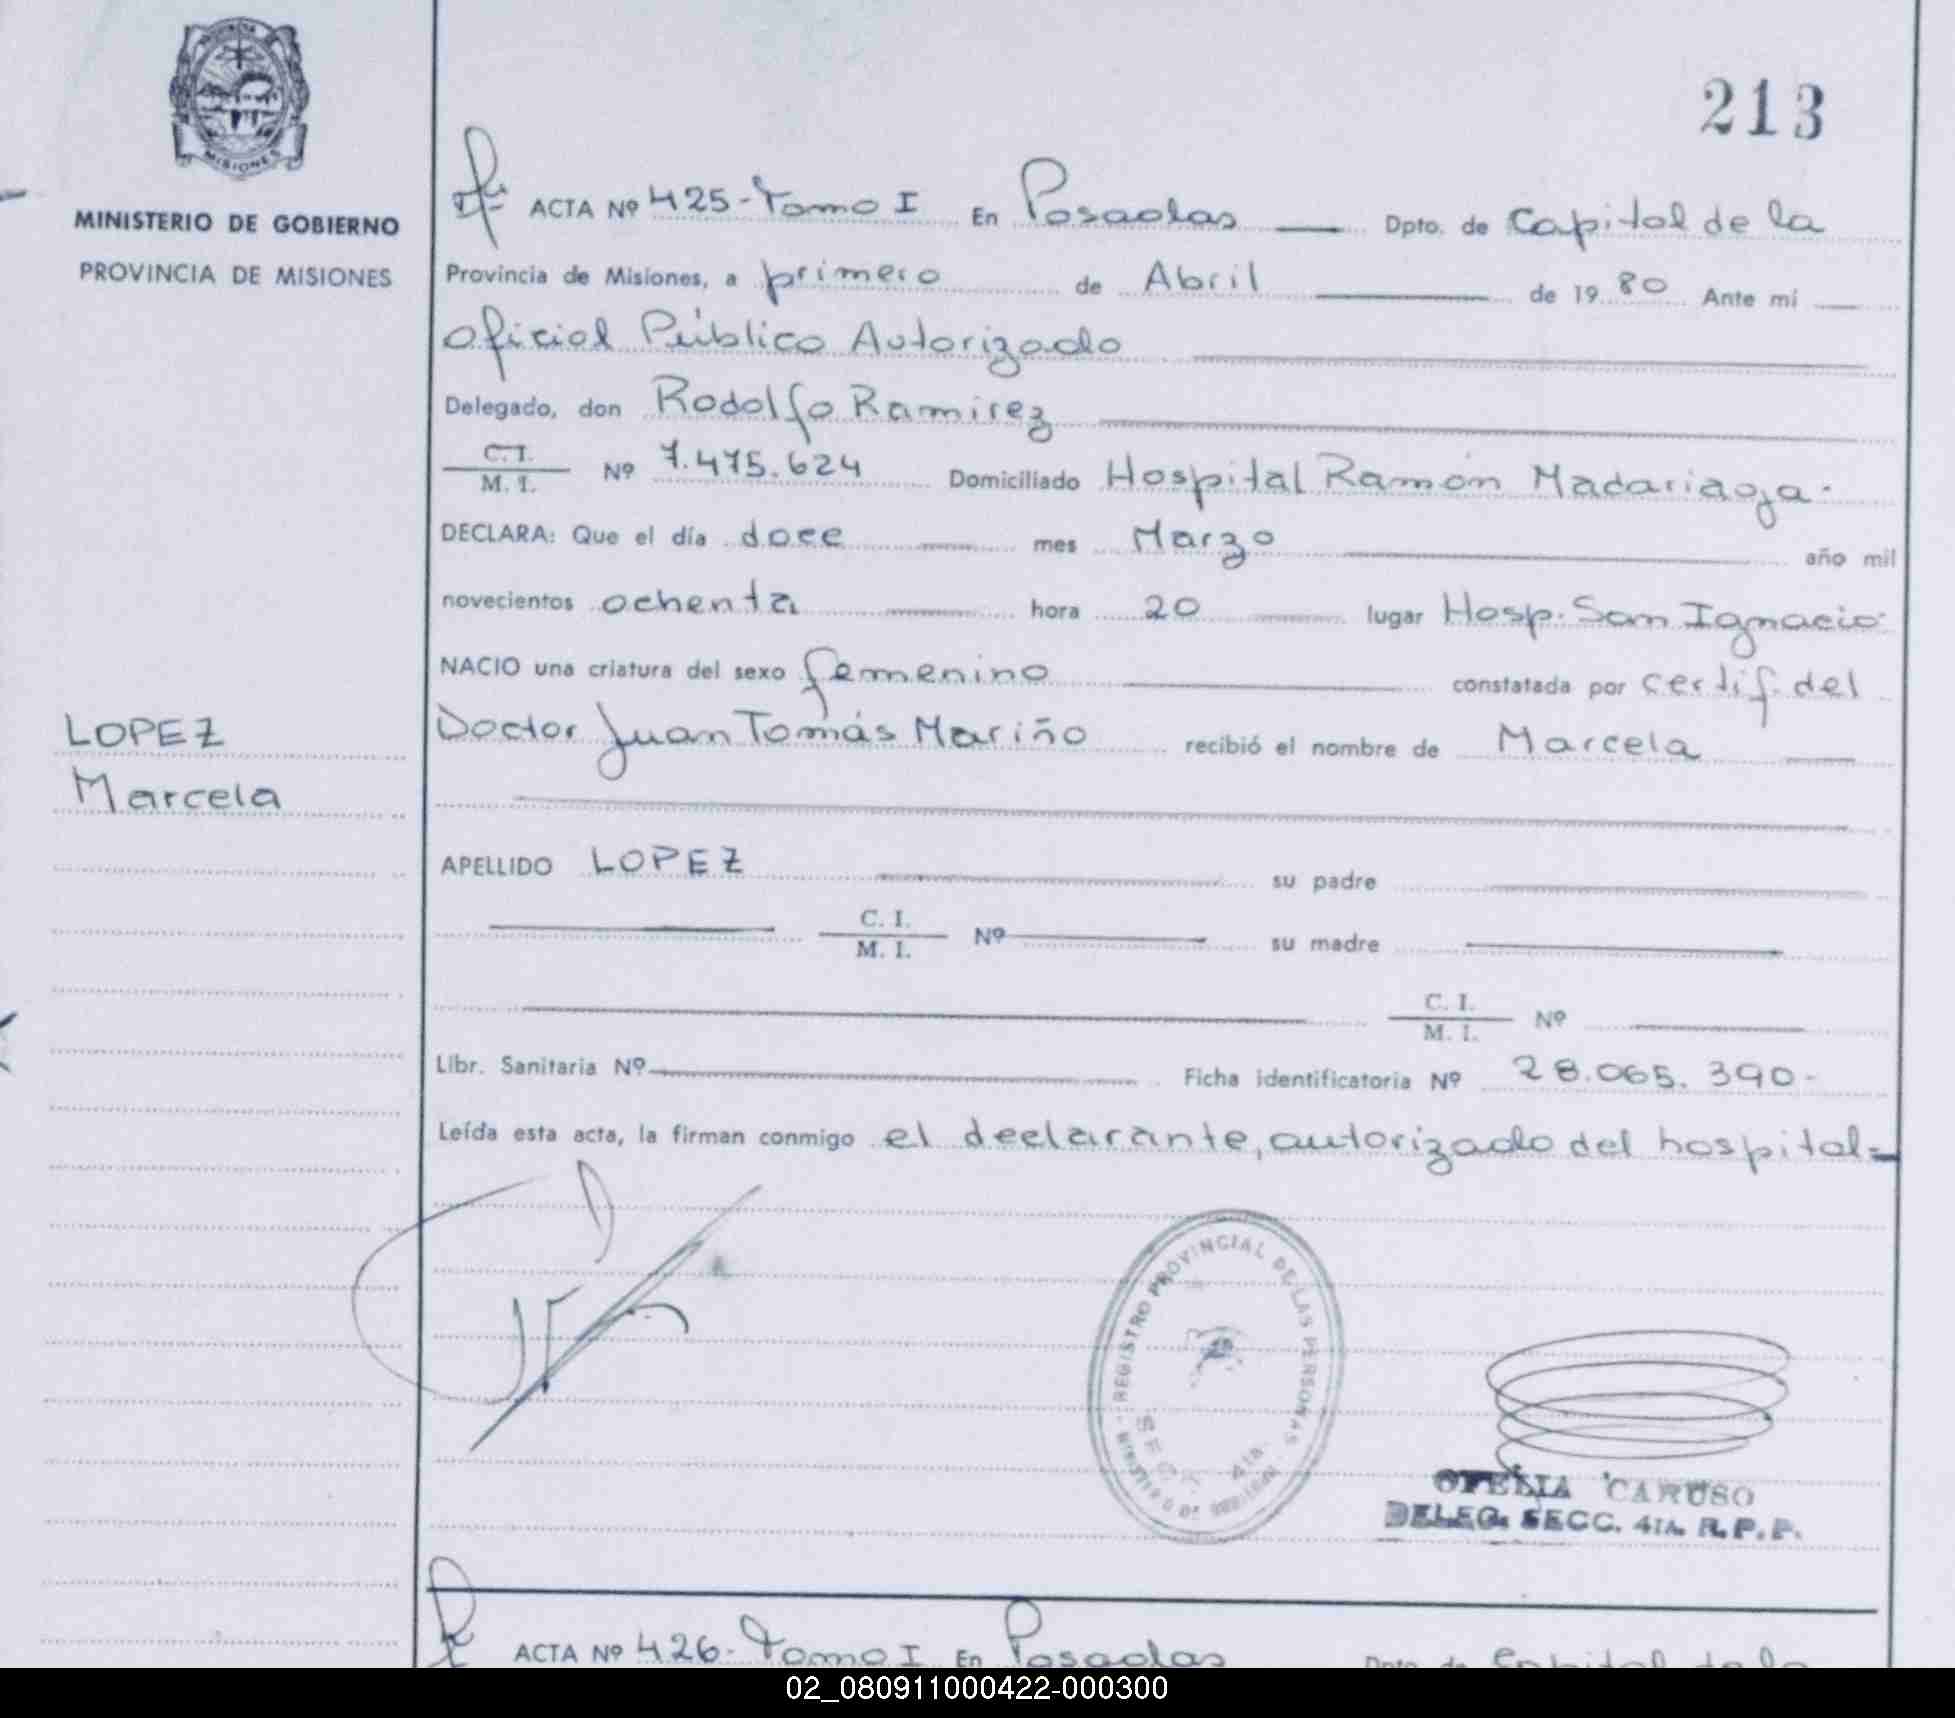 213
PROVINCIA DE
MISIONES
MINISTERIO DE GOBIERNO
PROVINCIA DE MISIONES
ACTA Nº 425-Tomo I En Posadas Dpto. de Capital de la
Provincia de Misiones, a primero de Abril de 1980 Ante mi
Oficial Público Autorizado
Delegado, don Rodolfo Ramirez
C.I.
M.I. Nº 7.475.624 Domiciliado Hospital Ramón Madariaga.
DECLARA: Que el día doce mes Marzo año mil
novecientos ochenta hora 20 lugar Hosp. San Ignacio
NACIO una criatura del sexo femenino constatada por certif. del
Doctor Juan Tomás Mariño recibió el nombre de Marcela
LOPEZ
Marcela
APELLIDO LOPEZ su padre
C. I.
M. I. Nº su madre
C. I.
M. I. Nº
Libr. Sanitaria Nº Ficha identificatoria Nº 28.065.390-
Leída esta acta, la firman conmigo el declarante, autorizado del hospital=
REGISTRO PROVINCIAL DE LAS PERSONAS
SECC. 4ta.
OFELIA CARUSO
DELEG. SECC. 4ta. R.P.P.
ACTA Nº 426-Tomo I En Posadas Dpto. de Capital de la
02_080911000422-000300